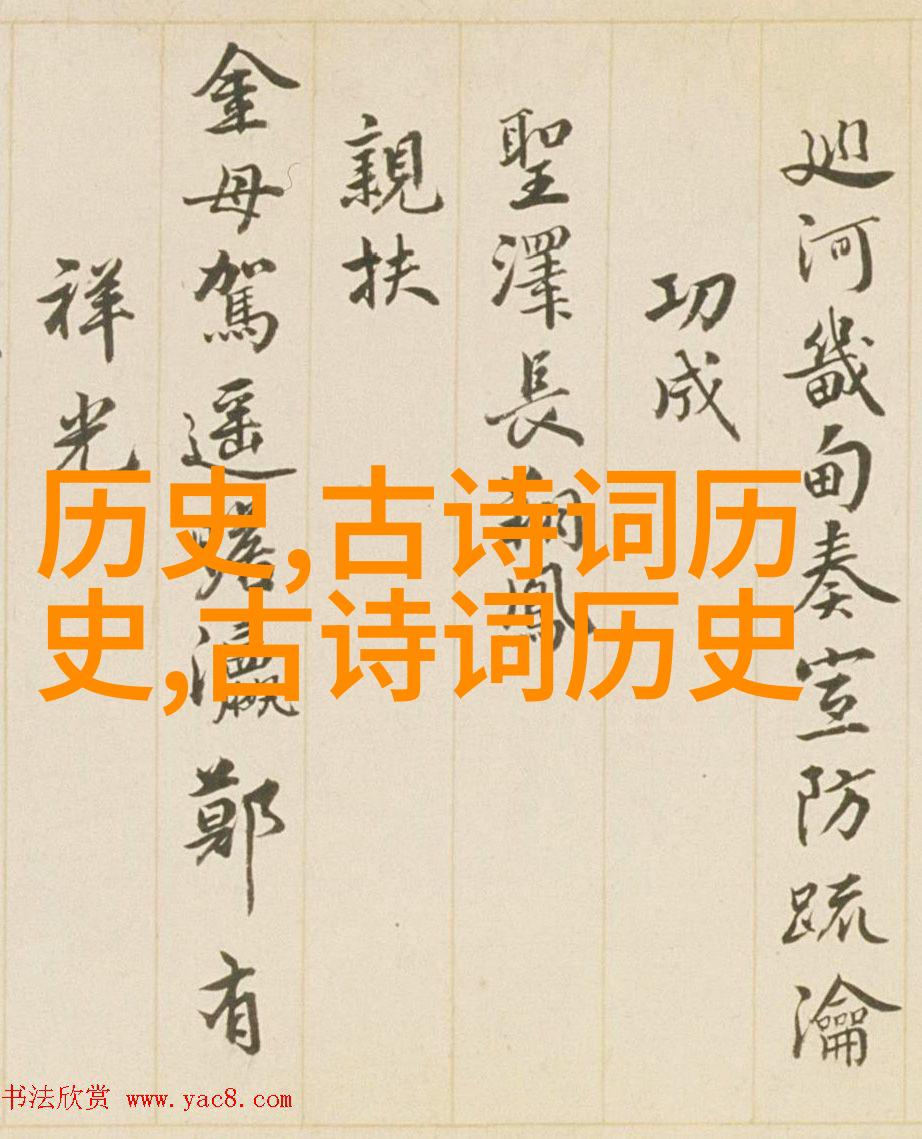 廵河畿甸奏宣防疏瀹
功成
聖澤長鳳
親扶
金母駕遥瞻瀛鄭有
祥光
历史,古诗词历
史,古诗词历史
书法欣赏 www.yac8.com